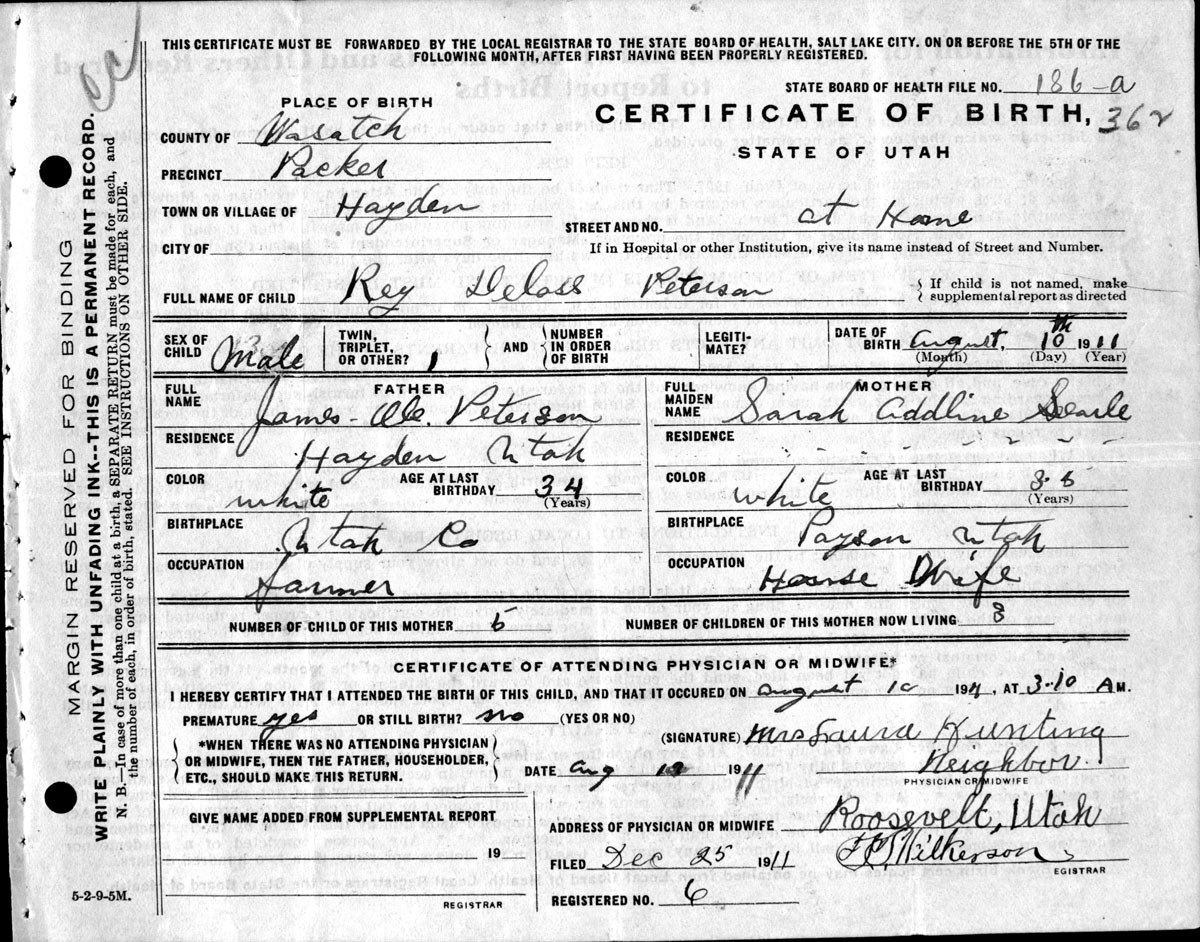 THIS CERTIFICATE MUST BE FORWARDED BY THE LOCAL REGISTRAR TO THE STATE BOARD OF HEALTH, SALT LAKE CITY. ON OR BEFORE THE 5TH OF THE
FOLLOWING MONTH, AFTER FIRST HAVING BEEN PROPERLY REGISTERED.
STATE BOARD OF HEALTH FILE NO. 186-a
PLACE OF BIRTH
CERTIFICATE OF BIRTH, 362
COUNTY OF Wasatch
STATE OF UTAH
PRECINCT Packer
TOWN OR VILLAGE OF Hayden
STREET AND NO. at Home
CITY OF
If in Hospital or other Institution, give its name instead of Street and Number.
FULL NAME OF CHILD Rey Deloss Peterson
If child is not named, make
supplemental report as directed
SEX OF CHILD Male
TWIN, TRIPLET, OR OTHER? 1
AND
NUMBER IN ORDER OF BIRTH
LEGITI-MATE?
DATE OF BIRTH August, 10th 1911
(Month) (Day) (Year)
FATHER
FULL NAME James Ole. Peterson
RESIDENCE
Hayden Utah
COLOR white
AGE AT LAST BIRTHDAY 34
(Years)
BIRTHPLACE
Utah Co
OCCUPATION
Farmer
MOTHER
FULL MAIDEN NAME Sarah Addline Searle
RESIDENCE
" " " "
COLOR white
AGE AT LAST BIRTHDAY
(Years)
BIRTHPLACE
Payson Utah
OCCUPATION
House Wife
NUMBER OF CHILD OF THIS MOTHER 5
NUMBER OF CHILDREN OF THIS MOTHER NOW LIVING 3
CERTIFICATE OF ATTENDING PHYSICIAN OR MIDWIFE*
I HEREBY CERTIFY THAT I ATTENDED THE BIRTH OF THIS CHILD, AND THAT IT OCCURED ON August 10 1911, AT 3-10 A M.
PREMATURE yes OR STILL BIRTH? no (YES OR NO)
(SIGNATURE) Mrs Laura Hunting
*WHEN THERE WAS NO ATTENDING PHYSICIAN
OR MIDWIFE, THEN THE FATHER, HOUSEHOLDER,
ETC., SHOULD MAKE THIS RETURN.
DATE Aug 1911
Neighbor
PHYSICIAN OR MIDWIFE
GIVE NAME ADDED FROM SUPPLEMENTAL REPORT
19
REGISTRAR
ADDRESS OF PHYSICIAN OR MIDWIFE Roosevelt, Utah
FILED Dec 25 1911
Wilkerson
REGISTRAR
REGISTERED NO. 6
5-2-9-5M.
MARGIN RESERVED FOR BINDING
WRITE PLAINLY WITH UNFADING INK--THIS IS A PERMANENT RECORD.
N. B.—In case of more than one child at a birth, a SEPARATE RETURN must be made for each, and
the number of each, in order of birth, stated. SEE INSTRUCTIONS ON OTHER SIDE.